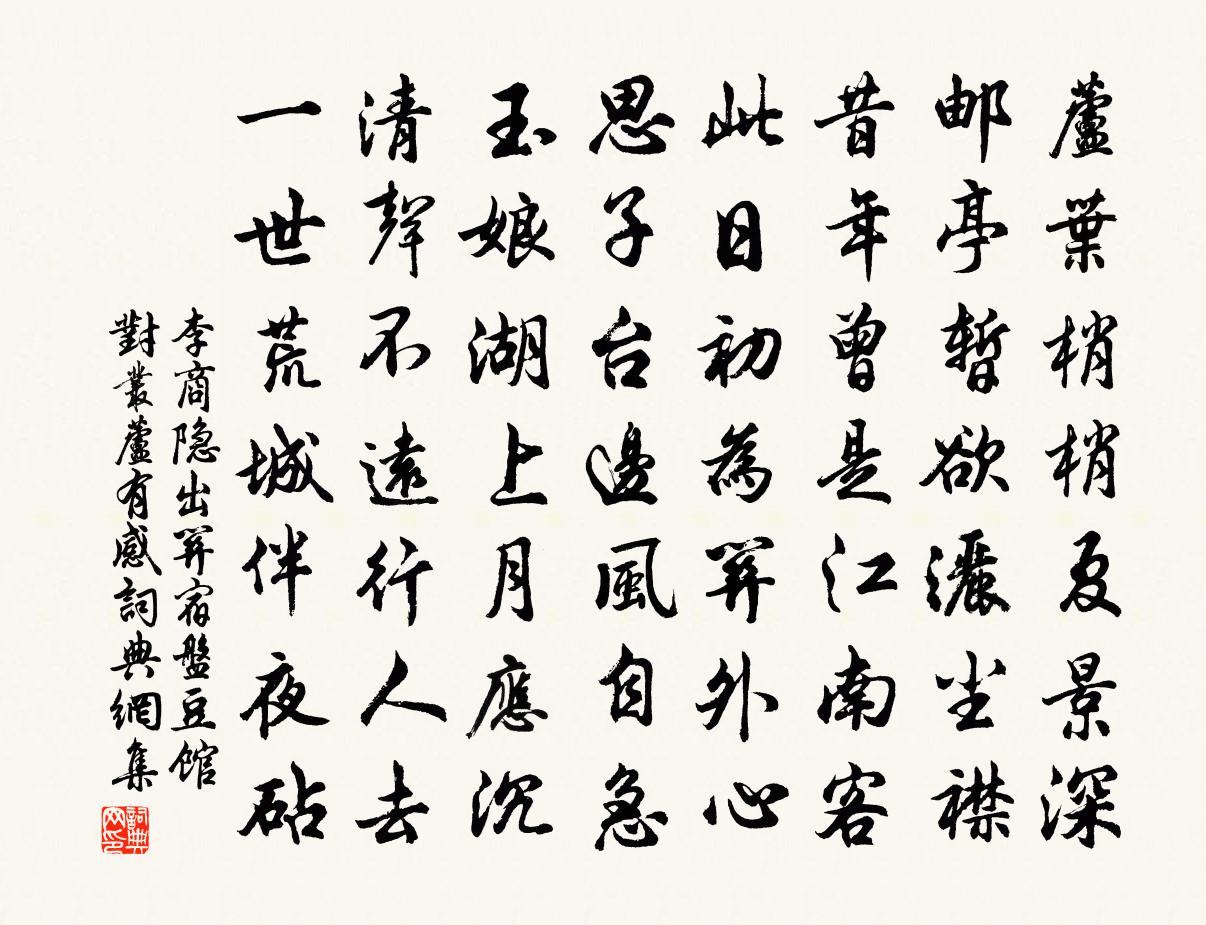 蘆葉梢梢夏景深
邮亭暫欲灑尘襟
昔年曾是江南客
此日初為關外心
思子台邊風自急
玉娘湖上月應沉
清聲不遠行人去
一世荒城伴夜砧
李商隐出關宿盤豆館
對叢蘆有感詞典網集
詞典網印